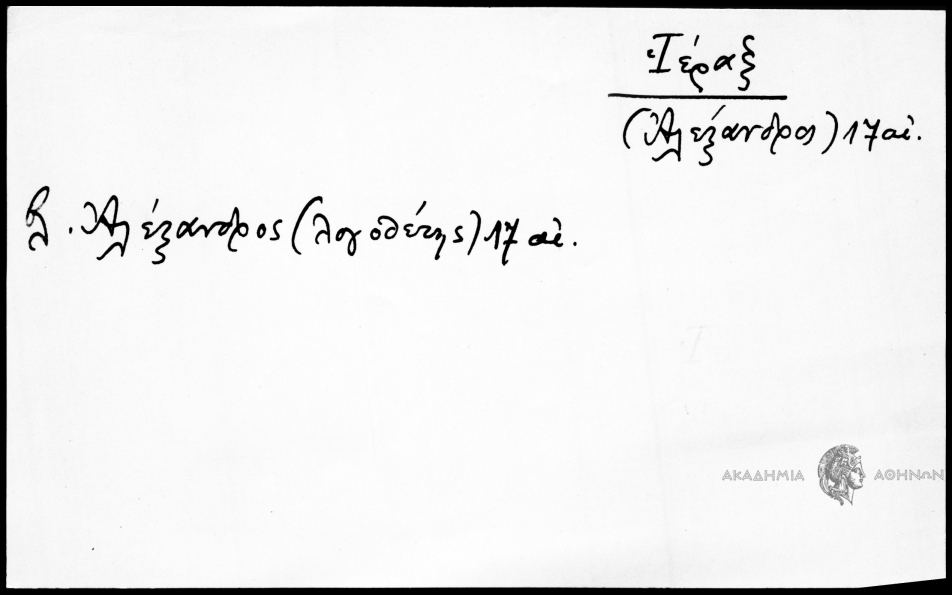 Ἱέραξ
(Ἀλέξανδρος) 17 αἰ.
βλ. Ἀλέξανδρος (λογοθέτης) 17 αἰ.
ΑΚΑΔΗΜΙΑ ΑΘΗΝΩΝ